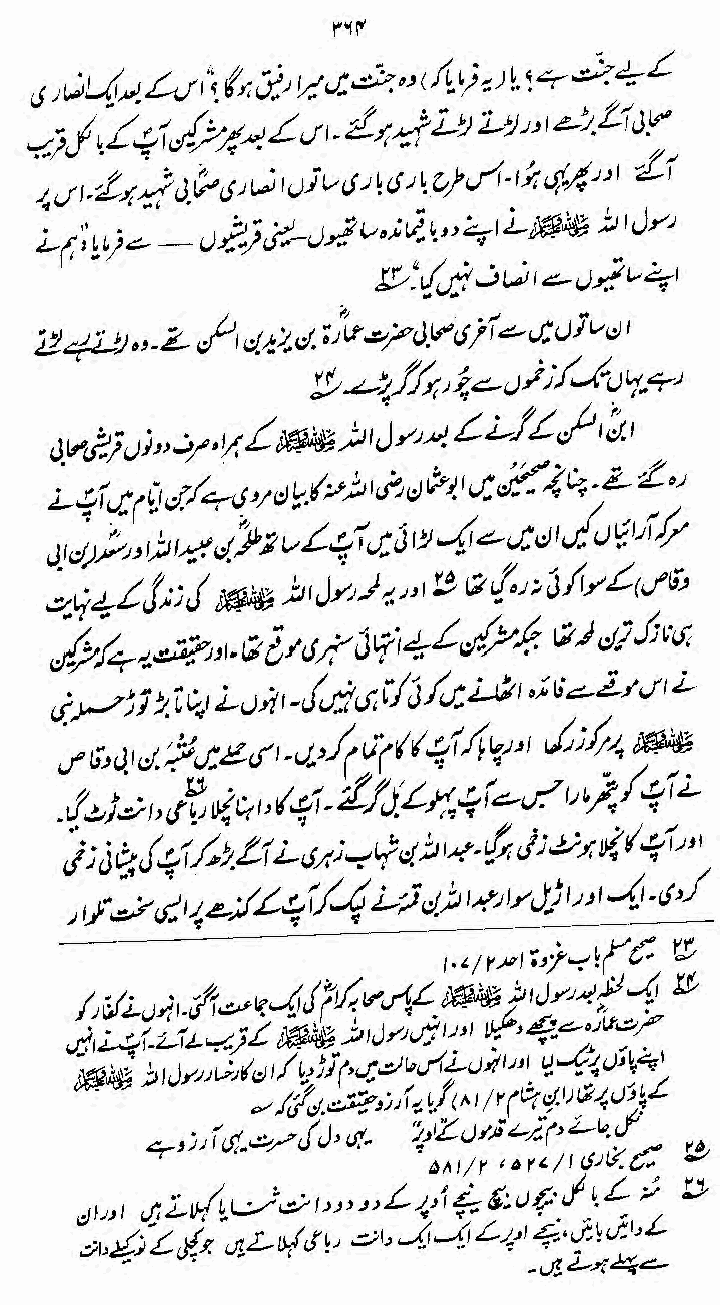 ۳۶۴
کے لیے جنّت ہے؟ یا (یہ فرمایا کہ) وہ جنّت میں میرا رفیق ہوگا؟" اس کے بعد ایک انصاری
صحابی آگے بڑھے اور لڑتے لڑتے شہید ہوگئے۔ اس کے بعد پھر مشرکین آپؐ کے بالکل قریب
آگئے اور پھر یہی ہُوا۔ اس طرح باری باری ساتوں انصاری صحابیؓ شہید ہوگئے۔ اس پر
رسول اللہ ﷺ نے اپنے دو باقیماندہ ساتھیوں — یعنی قریشیوں — سے فرمایا: "ہم نے
اپنے ساتھیوں سے انصاف نہیں کیا"۔ ۲۳
ان ساتوں میں سے آخری صحابی حضرت عمارۃؓ بن یزید بن السکن تھے۔ وہ لڑتے رہے لڑتے
رہے یہاں تک کہ زخموں سے چُور ہو کر گر پڑے۔ ۲۴
ابنُ السکنؓ کے گرنے کے بعد رسول اللہ ﷺ کے ہمراہ صرف دونوں قریشی صحابی
رہ گئے تھے۔ چنانچہ صحیحین میں ابوعثمان رضی اللہ عنہ کا بیان مروی ہے کہ جن ایّام میں آپؐ نے
معرکہ آرائیاں کیں ان میں سے ایک لڑائی میں آپؐ کے ساتھ طلحہؓ بن عبید اللہ اور سعدؓ (بن ابی
وقاص) کے سوا کوئی نہ رہ گیا تھا ۲۵ اور یہ لمحہ رسول اللہ ﷺ کی زندگی کے لیے نہایت
ہی نازک ترین لمحہ تھا جبکہ مشرکین کے لیے انتہائی سنہری موقع تھا۔ اور حقیقت یہ ہے کہ مشرکین
نے اس موقعے سے فائدہ اٹھانے میں کوئی کوتاہی نہیں کی۔ انہوں نے اپنا تابڑ توڑ حملہ نبی
ﷺ پر مرکوز رکھا اور چاہا کہ آپؐ کا کام تمام کردیں۔ اسی حملے میں عُتْبَہ بن ابی وقاص
نے آپؐ کو پتّھر مارا جس سے آپؐ پہلو کے بَل گر گئے۔ آپؐ کا داہنا نچلا رباعی ۲۶ دانت ٹوٹ گیا۔
اور آپؐ کا نچلا ہونٹ زخمی ہوگیا۔ عبداللہ بن شہاب زہری نے آگے بڑھ کر آپؐ کی پیشانی زخمی
کردی۔ ایک اور اڑیل سوار عبداللہ بن قمئہ نے لپک کر آپؐ کے کندھے پر ایسی سخت تلوار
۲۳ صحیح مسلم باب غزوۃ احد ۲/۱۰۷
۲۴ ایک لحظہ بعد رسول اللہ ﷺ کے پاس صحابہ کرامؓ کی ایک جماعت آگئی۔ انہوں نے کفّار کو
حضرت عمارہؓ سے پیچھے دھکیلا اور انہیں رسول اللہ ﷺ کے قریب لے آئے۔ آپؐ نے انہیں
اپنے پاؤں پر ٹیک لیا اور انہوں نے اس حالت میں دم توڑ دیا کہ ان کا رخسار رسول اللہ ﷺ
کے پاؤں پر تھا (ابن ہشام ۲/۸۱) گویا یہ آرزو حقیقت بن گئی کہ ؎
نکل جائے دم تیرے قدموں کے اوپر یہی دل کی حسرت یہی آرزو ہے
۲۵ صحیح بخاری ۱/۵۲۷، ۲/۵۸۱
۲۶ مُنہ کے بالکل بیچوں بیچ نیچے اُوپر کے دو دو دانت ثنایا کہلاتے ہیں اور ان
کے دائیں بائیں، نیچے اوپر کے ایک ایک دانت رباعی کہلاتے ہیں جو کچلی کے نوکیلے دانت
سے پہلے ہوتے ہیں۔